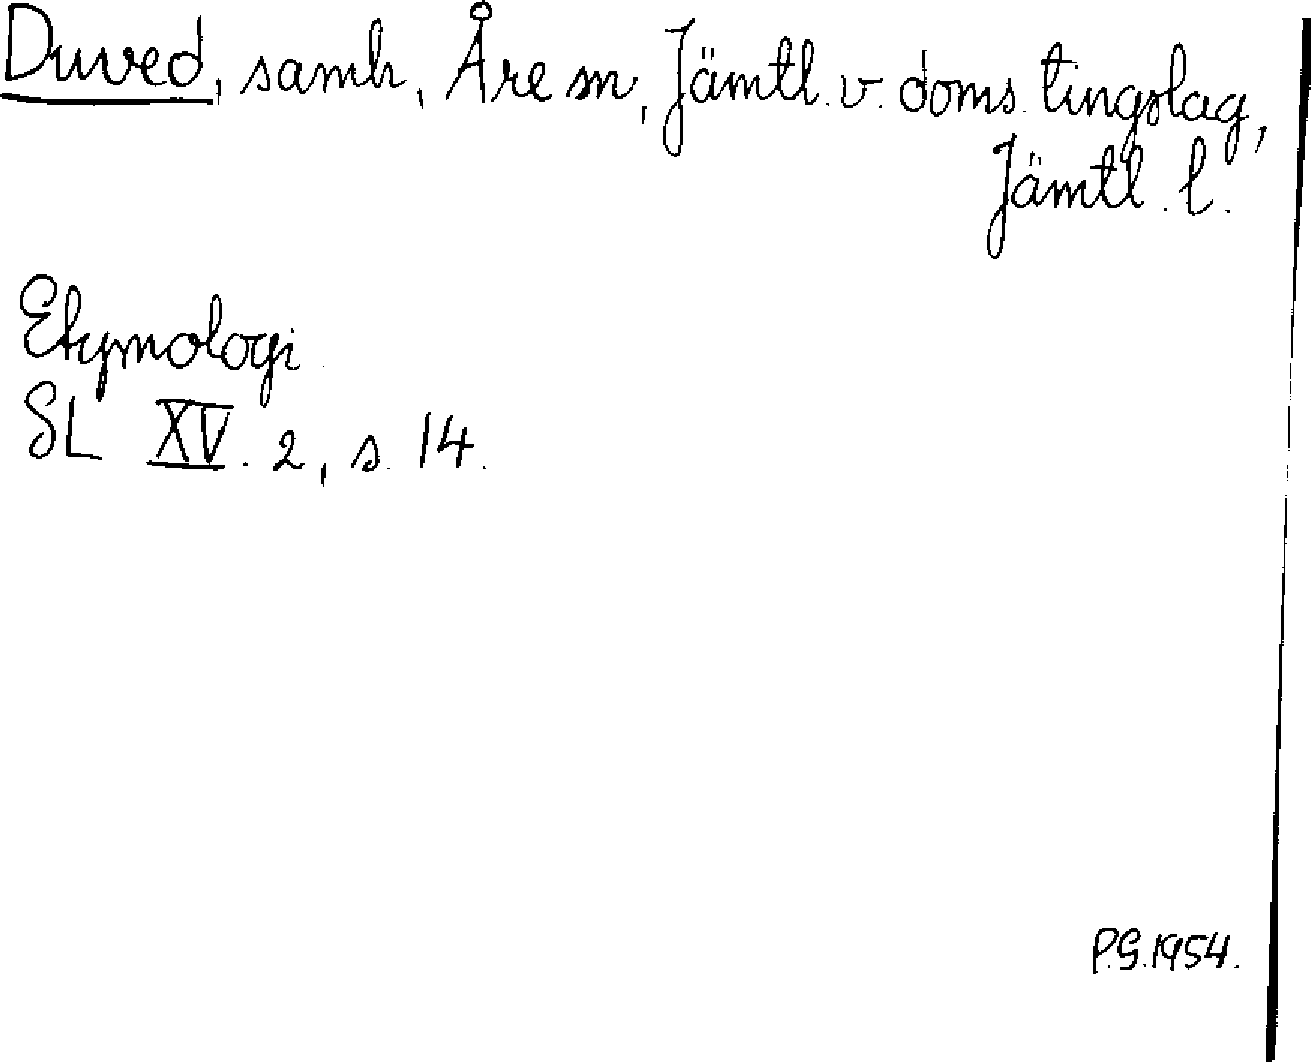 Duved, samh, Åre sn, Jämtl. v. doms. tingslag,
Jämtl. l.
Etymologi.
SL XV. 2, s. 14.
P.G. 1954.